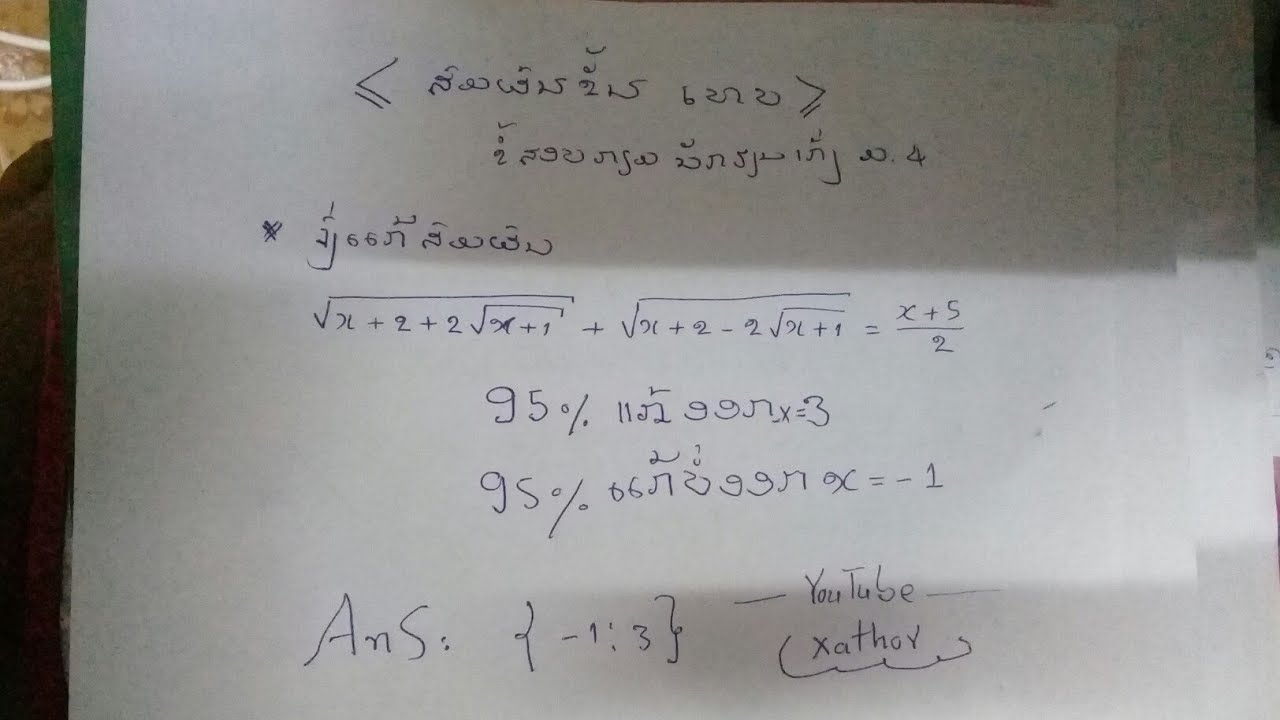 < ສົມຜົນຂັ້ນ ເທບ >
ຂໍ້ສອບທຽມ ນັກຮຽນເກັ່ງ ມ.4
* ຈົ່ງແກ້ ສົມຜົນ
√(x + 2 + 2√(x+1)) + √(x + 2 - 2√(x+1)) = (x+5)/2
95% ແກ້ ອອກ x=3
95% ແກ້ບໍ່ອອກ x = -1
Ans: {-1; 3}
— YouTube —
xathor